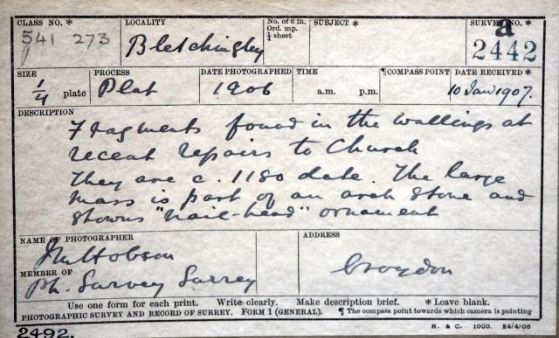 CLASS NO. * LOCALITY No. of 6 in. Ord. mp. ¼ sheet SUBJECT * SURVEY NO. *
541 273 Bletchingley a 2442
SIZE PROCESS DATE PHOTOGRAPHED TIME ¶COMPASS POINT DATE RECEIVED *
¼ plate Plat 1906 a.m. p.m. 10 Jan 1907.
DESCRIPTION
Fragments found in the wallings at
recent repairs to Church
They are c. 1180 date. The large
mass is part of an arch stone and
shows "nail-head" ornament
NAME OF PHOTOGRAPHER ADDRESS
JM Hobson Croydon
MEMBER OF
Ph. Survey Surrey
Use one form for each print. Write clearly. Make description brief. * Leave blank.
PHOTOGRAPHIC SURVEY AND RECORD OF SURREY. FORM 1 (GENERAL). ¶ The compass point towards which camera is pointing
2492. R. & C. 1000. 24/4/06